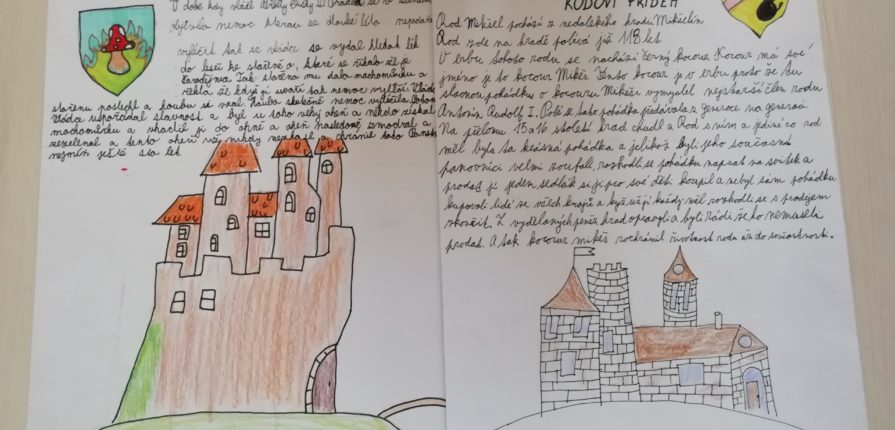 V době kdy vládl
byla nemoc kterou se dlouhá léta nepodařilo
vyléčit tak se vládce se vydal hledat lék
do lesa ke stařeně o, které se říkalo že je
čarodějnica. Tak stařena mu dala muchomůrku a
řekla že když ji uvaří tak nemoc vyléčí. Vládce
stařenu poslechl a houbu si vzal. Houba skutečně nemoc vyléčila
Vládce uspořádal slavnost a byl u toho velký oheň a někdo získal
muchomůrku a vhodil ji do ohně a oheň následovně zmodral a
zezelenal a tento oheň už nikdy nezhasl a chránil toto
nejmíň ještě sto let
RODOVÍ PŘÍBĚH
Rod Mikišel pochází z nedalekého hradu Mikišelín
Rod zde na hradě pobívá již 118 let
V erbu tohoto rodu se nachází černý kocour. Kocour má své
jméno je to kocour Mikéš. Tento kocour je v erbu proto že tu
slavnou pohádku o kocouru Mikéši vymyslel nejstarší člen rodu
Antonín Rudolf I. Poté se tato pohádka předávala z generace na generaci.
Na přelomu 15 a 16 století hrad chudl a Rod s ním a jediné co rod
měl byla ta krásná pohádka a jelikož byli jeho současní
panovníci velmi zoufalí, rozhodli se pohádku napsat na svitek a
prodat ji jeden sedlák si ji pro své děti koupil a nebyl sám pohádku
kupovali lidé ze všech krajů a když už ji každý měl rozhodli se s prodejem
skončit. Z vydělaných peněz hrad opravili a byli rádi že ho nemuseli
prodat. A tak kocour mikéš zachránil životnost rodu až do současnosti.